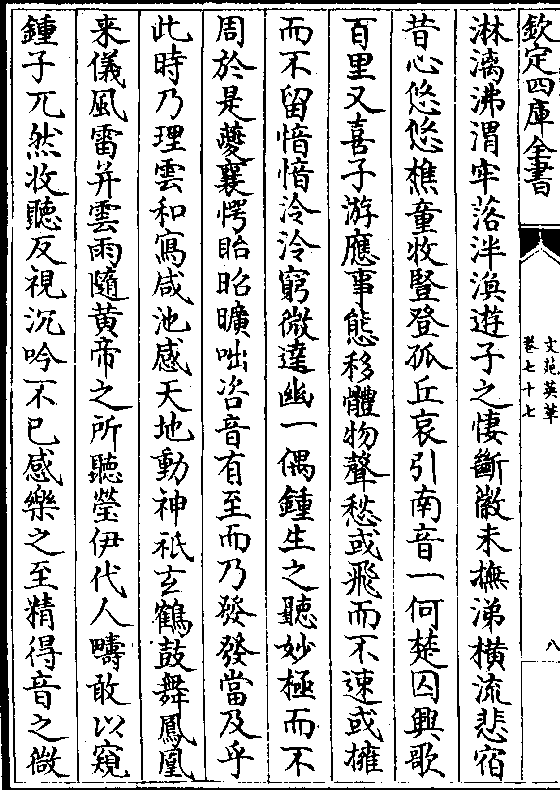 欽定四庫全書
文苑英華
卷七十七
八
淋漓沸渭牢落泮渙遊子之悽斷徽未撫涕橫流悲宿
昔心悠悠樵童牧豎登孤丘哀引南音一何楚囚興歌
百里又喜子游應事態移體物聲愁或飛而不速或擁
而不留愔愔泠泠窮微達幽一偶鍾生之聽妙極而不
周於是夔襄愕眙昭曠咄咨音有至而乃發發當及乎
此時乃理雲和寫咸池感天地動神祇玄鶴鼓舞鳳凰
来儀風雷并雲雨隨黄帝之所聽瑩伊代人疇敢以窺
鍾子兀然收聽反視沉吟不已感樂之至精得音之微